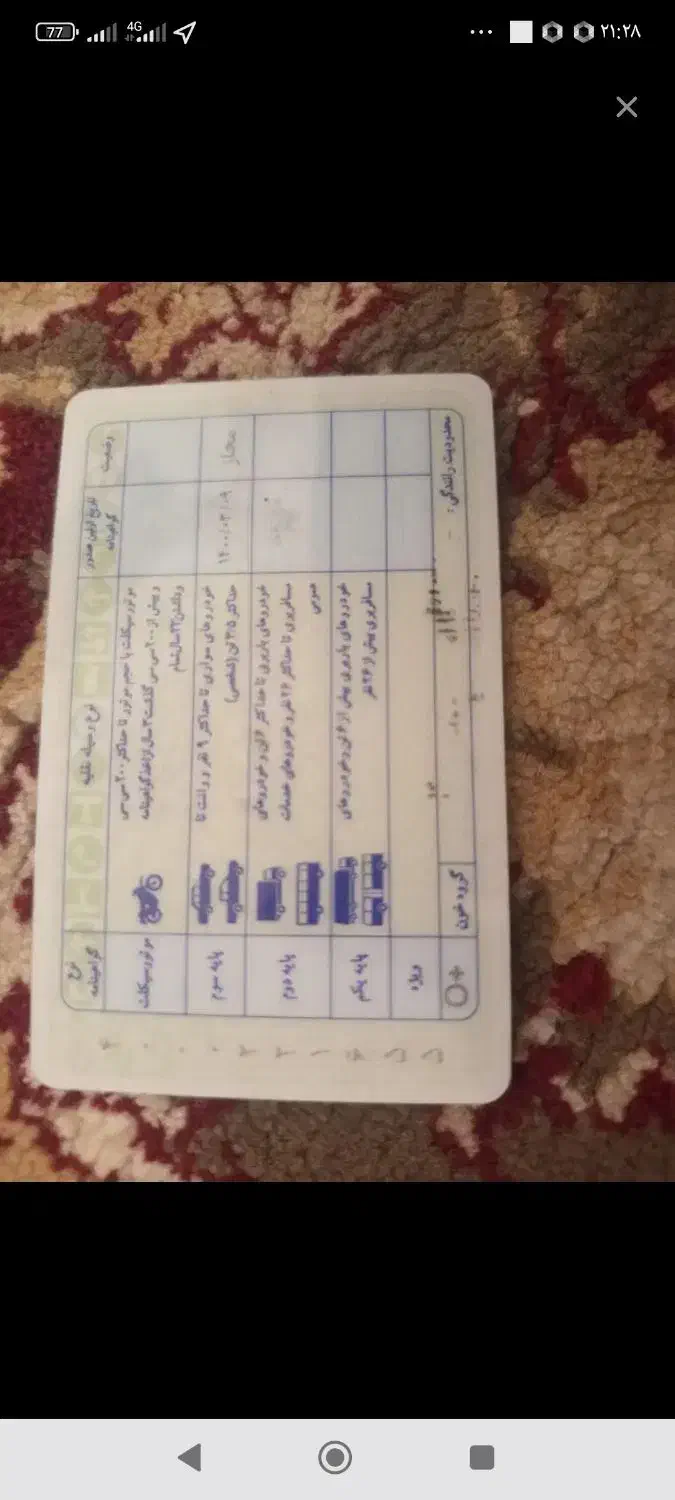 77
4G
۲۱:۲۸
نوع گواهینامه
نوع وسیله نقلیه
تاریخ اولین صدور گواهینامه
وضعیت
موتورسیکلت
موتورسیکلت با حجم موتور تا حداکثر ۲۰۰ سی سی
و بیش از ۲۰۰ سی سی گذشت ۳ سال از اخذ گواهینامه
و داشتن ۲۳ سال تمام
پایه سوم
خودروهای سواری تا حداکثر ۹ نفر و وانت تا
حداکثر ۳/۵ تن (شخصی)
۱۴۰۰/۰۳/۰۹
مجاز
پایه دوم
خودروهای باربری تا حداکثر ۶ تن و خودروهای
مسافربری تا حداکثر ۲۶ نفر و خودروهای خدمات
عمومی
پایه یکم
خودروهای باربری بیش از ۶ تن و خودروهای
مسافربری بیش از ۲۶ نفر
ویژه
O+
گروه خون
محدودیت رانندگی :